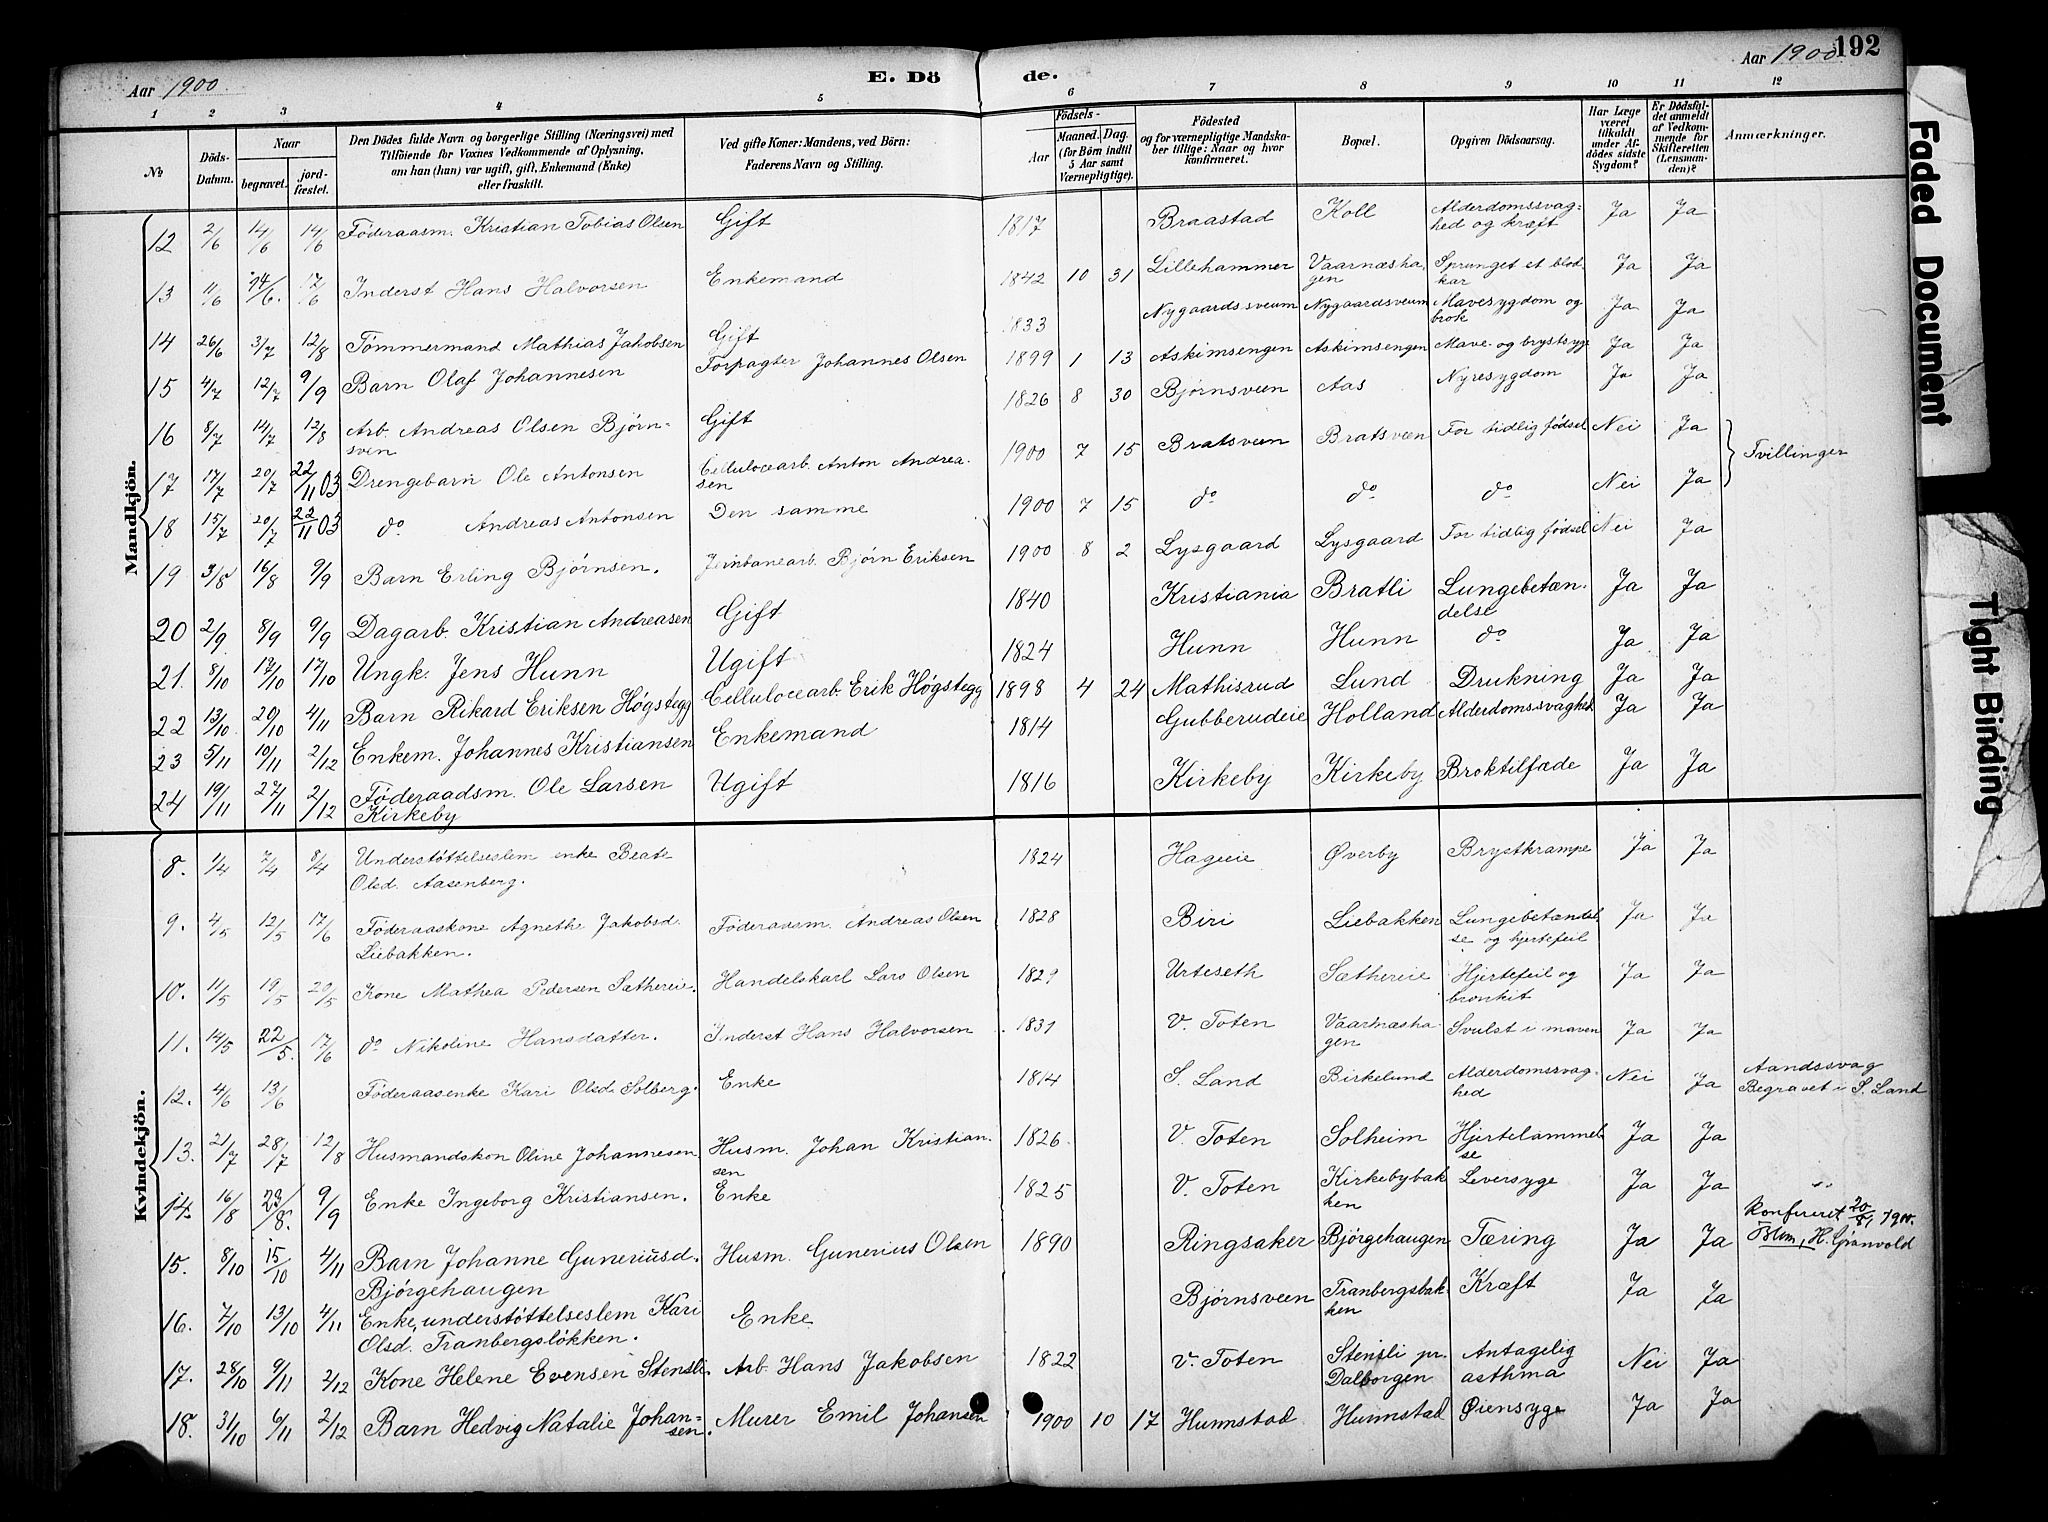 Aar 1900.
E. Döde.
Aar 1900 192
1 2 3 4 5 6 7 8 9 10 11 12
No
Döds-Datum.
Naar
begravet.
jordfæstet.
Den Dödes fulde Navn og borgerlige Stilling (Næringsvei) med
Tilföiende for Voxnes Vedkommende af Oplysning,
om han (hun) var ugift, gift, Enkemand (Enke)
eller fraskilt.
Ved gifte Koner: Mandens, ved Börn:
Faderens Navn og Stilling.
Födsels-
Aar
Maaned. Dag.
(for Börn indtil
5 Aar samt
Værnepligtige).
Födested
og for værnepligtige Mandskaber
tillige: Naar og hvor
konfirmeret.
Bopæl.
Opgiven Dödsaarsag.
Har Læge
været
tilkaldt
under Afdödes
sidste
Sygdom?
Er Dödsfaldet
anmeldt
af Vedkommende
for
Skifteretten
(Lensmanden)?
Anmærkninger.
Mandkjön.
12 2/6 14/6 14/6 Föderaasm. Kristian Tobias Olsen Gift 1817 Braastad Koll Alderdomssvaghed og kræft Ja Ja
13 11/6 14/6. 17/6 Inderst Hans Halvorsen Enkemand 1842 10 31 Lillehammer Vaarnæshagen Sprunget et blodkar Ja Ja
14 26/6 3/7 12/8 Tömmermand Mathias Jakobsen Gift 1833 Nygaardssveum Nygaardsveum Mavesygdom og brok Ja Ja
15 4/7 12/7 9/9 Barn Olaf Johannesen Forpagter Johannes Olsen 1899 1 13 Askimsengen Askimsengen Mave- og brystsyge Ja Ja
16 8/7 14/7 12/8 Arb. Andreas Olsen Bjørnsven Gift 1826 8 30 Bjørnsveen Aas Nyresygdom Ja Ja
17 17/7 20/7 22/11 03 Drengebarn Ole Antonsen Cellulocearb. Anton Andreasen 1900 7 15 Bratsveen Bratsveen For tidlig födsel Nei Ja Tvillinger
18 15/7 20/7 22/11 03 do Andreas Antonsen Den samme 1900 7 15 do do do Nei Ja
19 3/8 16/8 9/9 Barn Erling Bjørnsen. Jernbanearb. Bjørn Eriksen 1900 8 2 Lysgaard Lysgaard For tidlig födsel Nei Ja
20 2/9 8/9 9/9 Dagarb. Kristian Andreasen Gift 1840 Kristiania Bratli Lungebetændelse Ja Ja
21. 8/10 17/10 17/10 Ungk. Jens Hunn Ugift 1824 Hunn Hunn do Ja Ja
22 13/10 20/10 4/11 Barn Rikard Eriksen Høgstegg Cellulocearb. Erik Høgstegg 1898 4 24 Mathisrud Lund Drukning Ja Ja
23 5/11 10/11 2/12 Enkem. Johannes Kristiansen Enkemand 1814 Gubberudeie Holland Alderdomssvaghet Ja Ja
24 19/11 27/11 2/12 Föderaadsm. Ole Larsen Kirkeby Ugift 1816 Kirkeby Kirkeby Broktilfade Ja Ja
Kvindekjön.
8. 1/4 7/4 8/4 Understöttelseslem enke Beate Olsd. Aasenberg. 1824 Hageeie Øverby Brystkrampe Ja Ja
9. 4/5 12/5 17/6 Föderaaskone Agnethe Jakobsd. Liebakken. Föderaasm. Andreas Olsen 1828 Biri Liebakken Lungebetændelse og hjertefeil Ja Ja
10. 11/5 19/5 20/5 Kone Mathea Pedersen Sæthereie. Handelskarl Lars Olsen 1829 Urteseth Sæthereie Hjertefeil og bronkit Ja Ja
11. 14/5 22/5. 17/6 do Nikoline Hansdatter. Inderst Hans Halvorsen 1831 V. Toten Vaarnæshagen Svulst i maven Ja Ja
12. 4/6 13/6 Föderaasenke Kari Olsd. Solberg. Enke 1814 S. Land Birkelund Alderdomssvaghed Nei Ja Aandssvag Begravet i S. Land
13. 21/7 28/7 12/8 Husmandskon Oline Johannesen Husm. Johan Kristiansen 1826. V. Toten Solheim Hjertelammelse Ja Ja
14. 16/8 23/8. 9/9 Enke Ingeborg Kristiansen. Enke 1825 V. Toten Kirkebybakken Leversyge Ja Ja
15. 8/10 15/10 4/11 Barn Johanne Guneriusd. Bjørgehaugen Husm. Gunerius Olsen 1890 Ringsaker Bjørgehaugen Tæring Ja Ja H. Grønvold
16. 7/10 13/10 4/11 Enke, understöttelseslem Kari Olsd. Tranbergsløkken. Enke Bjørnsveen Tranbergsbakken Kræft Ja Ja
17. 28/10 9/11 2/12 Kone Helene Evensen Stensli. Arb. Hans Jakobsen 1822 V. Toten Stensli pr. Dalborgen Antagelig asthma Nei Ja
18. 31/10 6/11 2/12 Barn Hedvig Natalie Johansen. Murer Emil Johansen 1900 10 17 Hunnstad Hunnstad Øiensyge Ja Ja
Faded Document
Tight Binding